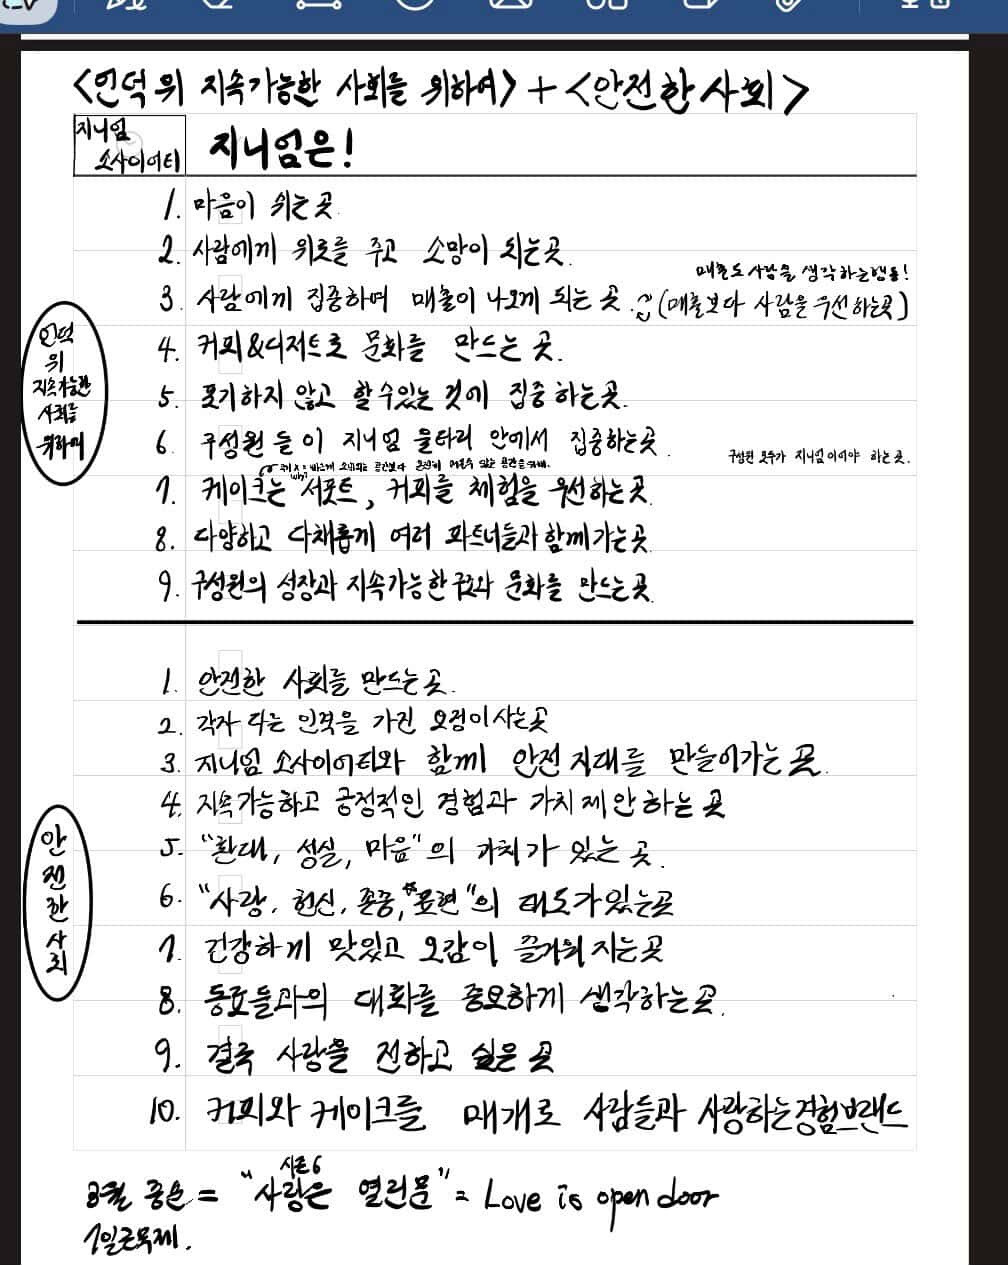 <언덕 위 지속가능한 사회를 위하여> + <안전한 사회>
지니엄
소사이어티
지니엄은!
1. 마음이 쉬는 곳.
2. 사람에게 위로를 주고 소망이 되는곳.
매출도 사람을 생각하는행동!
3. 사람에게 집중하여 매출이 나오게 되는 곳. (매출보다 사람을 우선하는곳)
4. 커피&디저트로 문화를 만드는 곳.
5. 포기하지 않고 할수있는 것에 집중하는곳.
6. 구성원들이 지니엄 울타리 안에서 집중하는곳.
구성원 모두가 지니엄이어야 하는 곳.
why?
7. 케이크는 서포트, 커피를 체험을 우선하는곳.
8. 다양하고 다채롭게 여러 파트너들과 함께가는곳
9. 구성원의 성장과 지속가능한 구조와 문화를 만드는곳.
언덕
위
지속가능한
사회를
위하여
1. 안전한 사회를 만드는곳.
2. 각자 다른 인격을 가진 요정이사는곳
3. 지니엄 소사이어티와 함께 안전지대를 만들어가는곳.
4. 지속가능하고 긍정적인 경험과 가치 제안하는 곳
5. "환대, 성실, 마음"의 가치가 있는 곳.
6. "사랑, 헌신, 존중, 표현"의 태도가있는곳
7. 건강하게 맛있고 오감이 즐거워지는곳
8. 동료들과의 대화를 중요하게 생각하는곳.
9. 결국 사랑을 전하고 싶은 곳
10. 커피와 케이크를 매개로 사람들과 사랑하는경험브랜드
안
전
한
사
회
시즌6
8월 중순 = "사랑은 열린문" = Love is open door